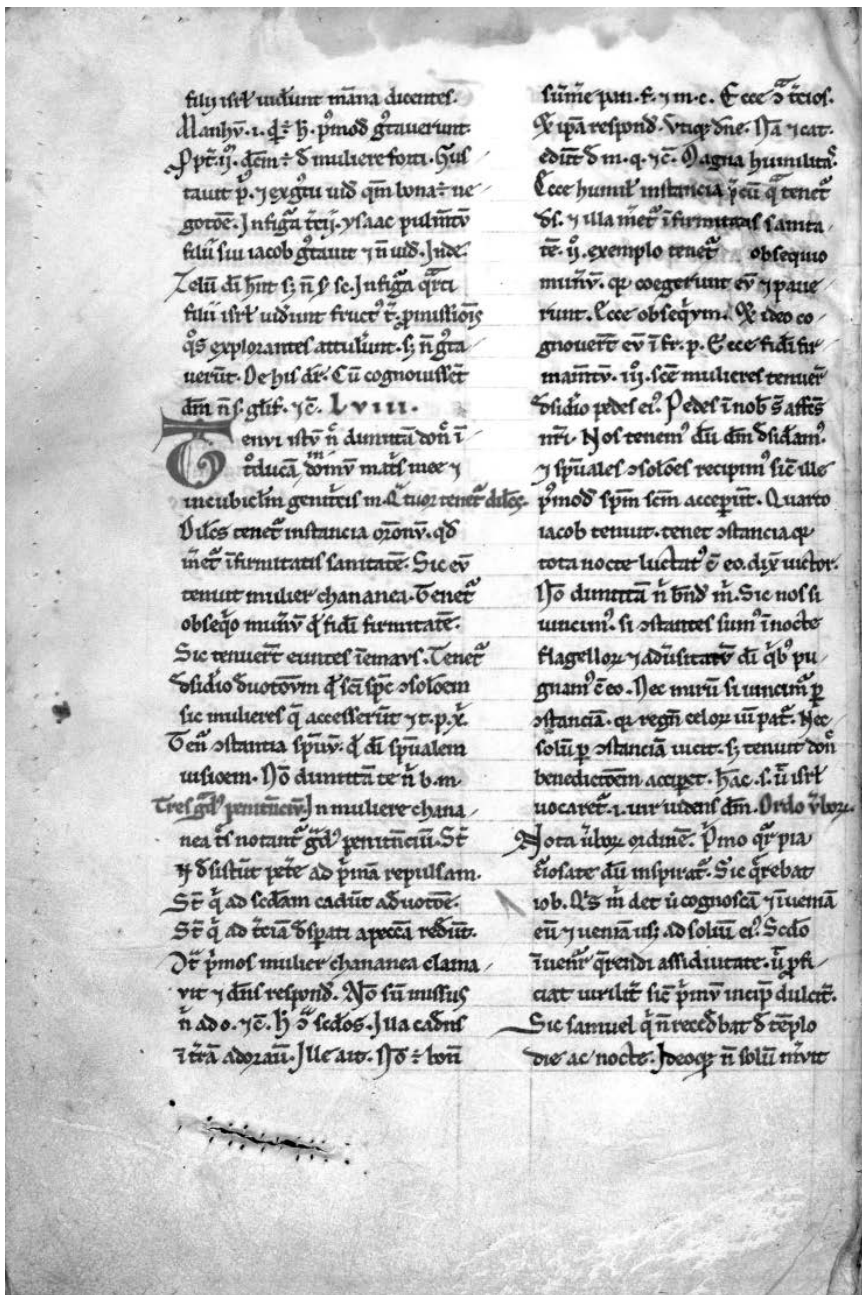 filii isrł uidṙunt manna dicentes.
Manhv̄. i. q̄d ÷ h̄. p̄mod̄ gͣtauerunt.
tauit p̄. ⁊ ex gͣtu uid̄ qm̄ bona ÷ ne
gotōē. In figͣa t̄cij. ysaac pulmt̄v̄
filii sui iacob gͣtauit ⁊ n̄ uid̄. Inde.
Zelū dī hn̄t sꝫ n̄ ẜ sc̄. In figͣa qͣrti
filii isrł uid̄unt fructꝰ t̄. ꝓmissiōis
qͦs explorantes attuler̄unt. sꝫ n̄ gͣta
uerūt. De his dr̄. Cū cognouissēt
dm̄ n̄ s. glīf. ⁊c̄. LVIII.
Tenvi istv̄ n̄c dimittā don̄c ī
t̄ducā domv̄ mat̄s mee ⁊
in cubiclm̄ genitͥcis m. Qͣtuor tenet̄ dilcō.
Dilcō tenet̄ instancia orōnv̄. qd̄
m̄et̄ īfirmitatis sanitatē. Sic ev̄
tenuit mulier chananea. Tenet̄
obseqͦo mun̄v̄ qd̄ fidī firmitatē.
Sic tenuer̄t euntes ī emavs. Tenet̄
dsidͦio d̄uotōv̄m qd̄ scī spc̄ ↄsolōem
sic mulieres q̄ accesserūt ⁊ t. p. x̄.
Ten̄ ↄstantia spūv̄. qd̄ dī spūalem
uisiōem. Nō dimittā te n̄ b. m.
Tres gͣdꝰ penitēnciū. In muliere chana
nea t̄s notant̄ gͣdꝰ penitēnciū. St̄
q̄ d̄sistūt pet̄e ad p̄mā repulsam.
St̄ q̄ ad sed̄am cadūt a d̄uotōē.
St̄ q̄ ad t̄ciā d̄spati a peccā redūt.
Ot̄ p̄mos mulier chananea clama
vit ⁊ dn̄s respond̄. Nō sū missus
n̄ ad o. ⁊c̄. h̄ ↄ̄ sed̄os. Illa cadn̄s
ī t̄rā adorau̅. Ille ait. Nō ÷ bon̄
sūme pan. f. ⁊ m. c. Ecce ↄ̄ t̄cios.
Ꝙ ipā respond̄. Vtiqꝫ dn̄e. Nā ⁊ cat.
edūt d̄ m. q. ⁊c̄. Magna humilitaͣs.
Ecce humil̄ instancia p̄cū q̄ tenet̄
ds̄. ⁊ illa m̄et̄ īfirmitatis sanita
tē. ij. exemplo tenet̄ obsequio
mun̄v̄. qꝛ coegerunt ev̄ ⁊ paue
runt. Ecce obseqͥvm. Ꝙ ideo co
gnouer̄t ev̄ ī fr. p. Ecce fidī fir
mam̄tv̄. iij. scē mulieres tenuer̄
d̄sidͦio pedes eiꝰ. Pedes ī nob̄ s̄ affc̄s
nr̄i. Nos tenemꝰ dū dm̄ d̄sidamꝰ.
⁊ spūales ↄsolōes recipimꝰ sic̄ ille
p̄mod̄ spm̄ scm̄ acceperūt. Quarto
iacob tenuit. tenet ↄstancia. qꝛ
tota nocte luctatꝰ ē c̄ eo. dix̄ uictor.
Nō dimittā n̄ bn̄d̄ m̄. Sic nos si
uincimꝰ. si ↄstantes sumꝰ ī nocte
flagellor̄ ⁊ adūsitatv̄ dī qͥbꝰ pu
gnamꝰ c̄ eo. Nec mirū si uincimꝰ ꝑ
ↄstanciā. qꝛ regn̄ celor̄ uī pat̄. Nec
solū ꝑ ↄstanciā uicit. sꝫ tenuit don̄c
benedictōem accip̄et. hͣc. s. ū isrł
uocaret̄. i. uir uidens dm̄. Ordo v̄bor̄.
Nota ūbor̄ ordinē. P̄mo qr̄ pia
iob. Qͥs m̄ det ū cognoscā ⁊ īueniā
eū ⁊ ueniā usqꝫ ad soliū eiꝰ. Secdo
īuenit̄ q̄rendi assiduitate. ū ꝓfi
ciat uirilit̄ sic̄ p̄mv̄ incip̄ dulcit̄.
Sic samuel q̄ n̄ reced̄bat d̄ tēplo
die ac nocte. Ideoqꝫ n̄ solū m̄vit